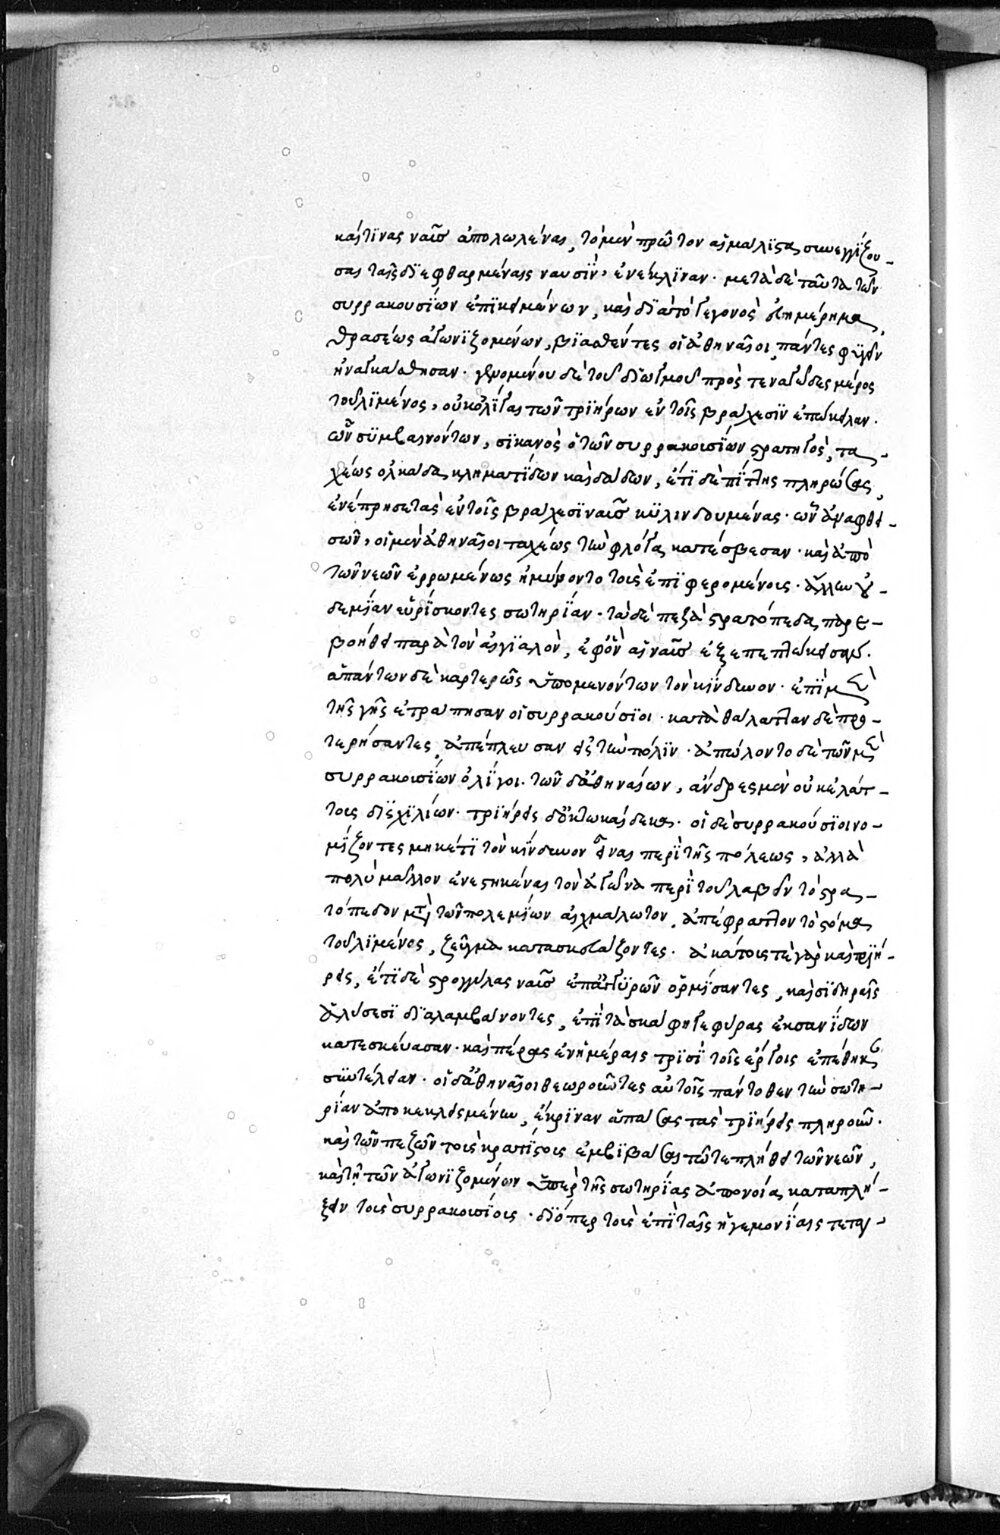 καί τινας ναῦς ἀπολωλέναι, τὸ μὲν πρῶτον αἱ μάλιστα συνεγγίζου-
σαι ταῖς διεφθαρμέναις ναυσὶν, ἐνέκλιναν. μετὰ δὲ ταῦτα τῶν
συρρακουσίων ἐπικειμένων, καὶ διὰ τὸ γεγονὸς εὐημέρημα,
θρασέως ἀγωνιζομένων, βιασθέντες οἱ ἀθηναῖοι, πάντες φυγεῖν
ἠναγκάσθησαν. γενομένου δὲ τοῦ διωγμοῦ πρὸς τεναγῶδες μέρος
τοῦ λιμένος, οὐκ ὀλίγαι τῶν τριήρων ἐν τοῖς βράχεσιν ἐπώκειλαν.
ὧν συμβαινόντων, σικανὸς ὁ τῶν συρρακοισίων στρατηγὸς, τα-
χέως ὁλκάδα κληματίδων καὶ δάδων, ἔτι δὲ πίττης πληρώσας,
ἐνέπρησε τὰς ἐν τοῖς βράχεσι ναῦς κυλινδουμένας. ὧν ἀναφθει-
σῶν, οἱ μὲν ἀθηναῖοι ταχέως τὴν φλόγα κατέσβεσαν. καὶ ἀπὸ
τῶν νεῶν ἐρρωμένως ἠμύνοντο τοὺς ἐπιφερομένους. ἄλλην οὐ-
δεμίαν εὑρίσκοντες σωτηρίαν. τὰ δὲ πεζὰ στρατόπεδα παρε-
βοήθει παρὰ τὸν αἰγιαλὸν, ἐφ' ὃν αἱ ναῦς ἐξεπεπτώκεισαν.
ἁπάντων δὲ καρτερῶς ὑπομενόντων τὸν κίνδυνον. ἐπὶ μὲν
τῆς γῆς ἐτράπησαν οἱ συρρακούσιοι. κατὰ θάλατταν δὲ προ-
τερήσαντες, ἀπέπλευσαν εἰς τὴν πόλιν. ἀπώλοντο δὲ τῶν μὲν
συρρακοισίων ὀλίγοι. τῶν δ' ἀθηναίων, ἄνδρες μὲν οὐκ ἐλάτ-
τους δισχιλίων. τριήρεις δ' ὀκτωκαίδεκα. οἱ δὲ συρρακούσιοι νο-
μίζοντες μηκέτι τὸν κίνδυνον εἶναι περὶ τῆς πόλεως, ἀλλὰ
πολὺ μᾶλλον ἐνεστηκέναι τὸν ἀγῶνα περὶ τοῦ λαβεῖν τὸ στρα-
τόπεδον μετὰ τῶν πολεμίων αἰχμάλωτον, ἀπέφραττον τὸ στόμα
τοῦ λιμένος, ζεῦγμα κατασκευάζοντες. ἀκάτους τε γὰρ καὶ τριή-
ρεις, ἔτι δὲ στρογγύλας ναῦς ἐπ' ἀγκυρῶν ὁρμίσαντες, καὶ σιδηραῖς
ἁλύσεσι διαλαμβάνοντες, ἐπὶ τὰ σκάφη γεφύρας ἐκ σανίδων
κατεσκεύασαν. καὶ πέρας ἐν ἡμέραις τρισὶ τοῖς ἔργοις ἐπέθηκαν
συντέλειαν. οἱ δ' ἀθηναῖοι θεωροῦντες αὐτοῖς πάντοθεν τὴν σωτη-
ρίαν ἀποκεκλεισμένην, ἔκριναν ἁπάσας τὰς τριήρεις πληροῦν.
καὶ τῶν πεζῶν τοὺς κρατίστους ἐμβιβάσαι τῶ τε πλήθει τῶν νεῶν,
καὶ τῆ τῶν ἀγωνιζομένων ὑπὲρ τῆς σωτηρίας ἀπονοία καταπλή-
ξειν τοὺς συρρακοισίους. διόπερ τοὺς ἐπὶ ταῖς ἡγεμονίαις τεταγ-